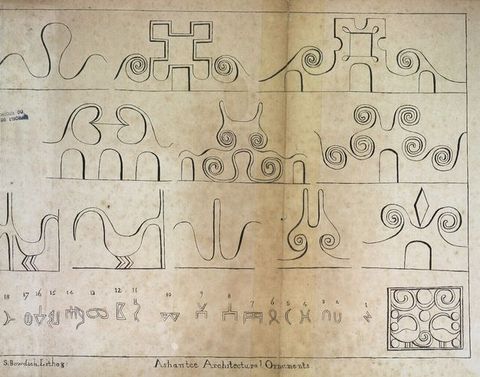 18 17 16 15 14 13 12 11 10 9 8 7 6 5 4 3 2 1
S. Bowdich, Lithog:
Ashantee Architectural Ornaments